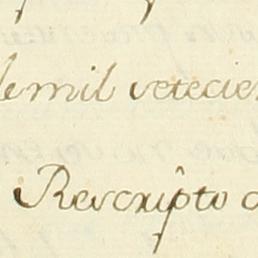 de mil setecien
Rescripto d